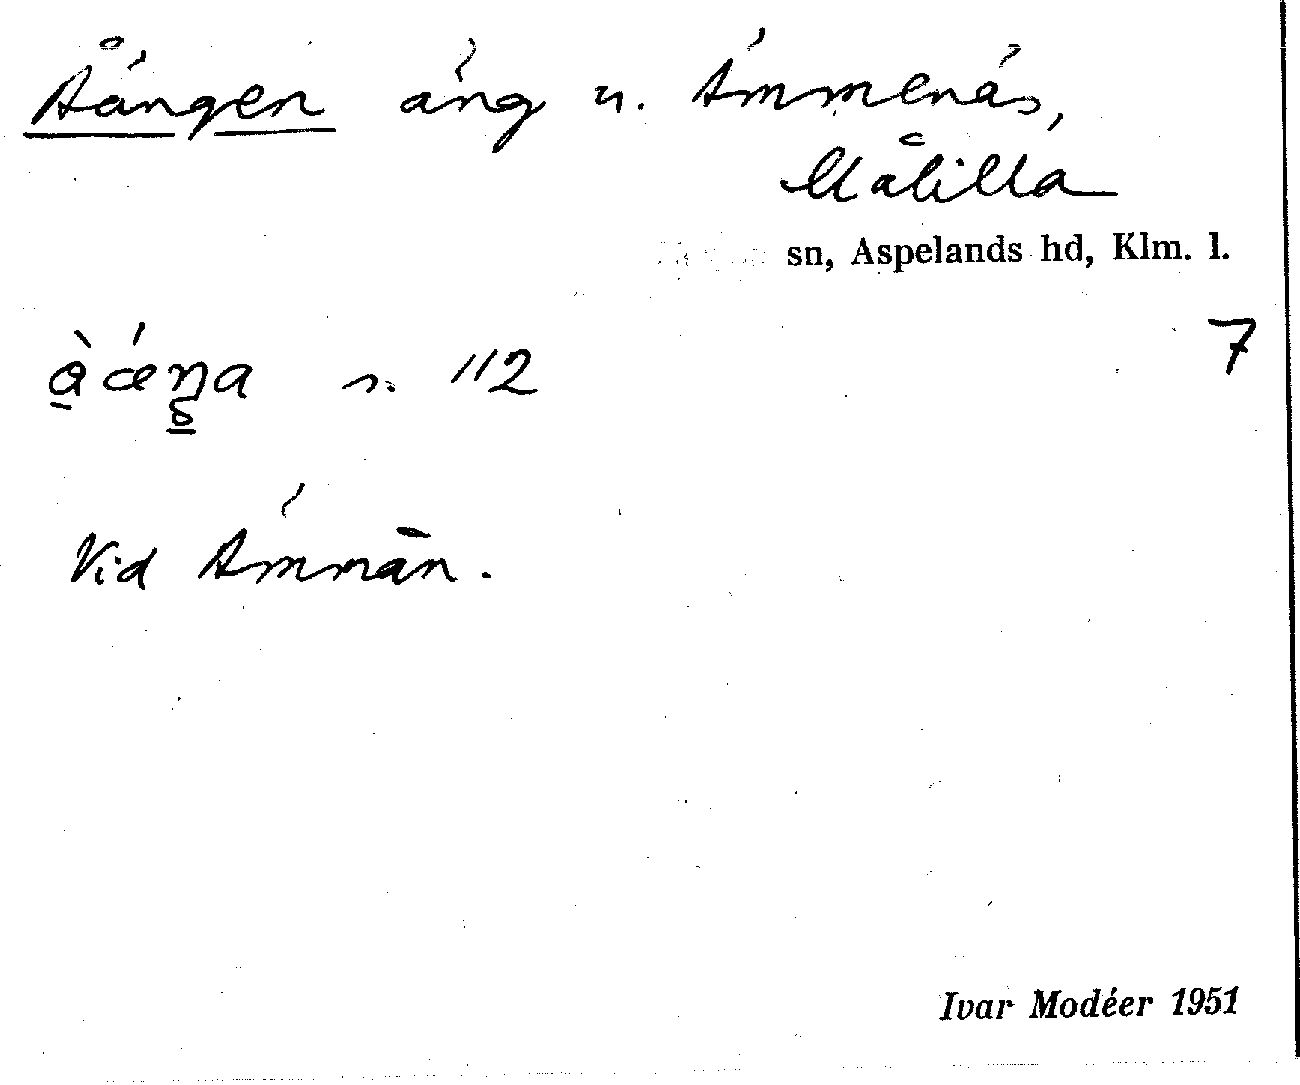 Åängen äng u. Ämmenäs,
Målilla
sn, Aspelands hd, Klm. l.
7
n. 112
Vid Ämmån.
Ivar Modéer 1951